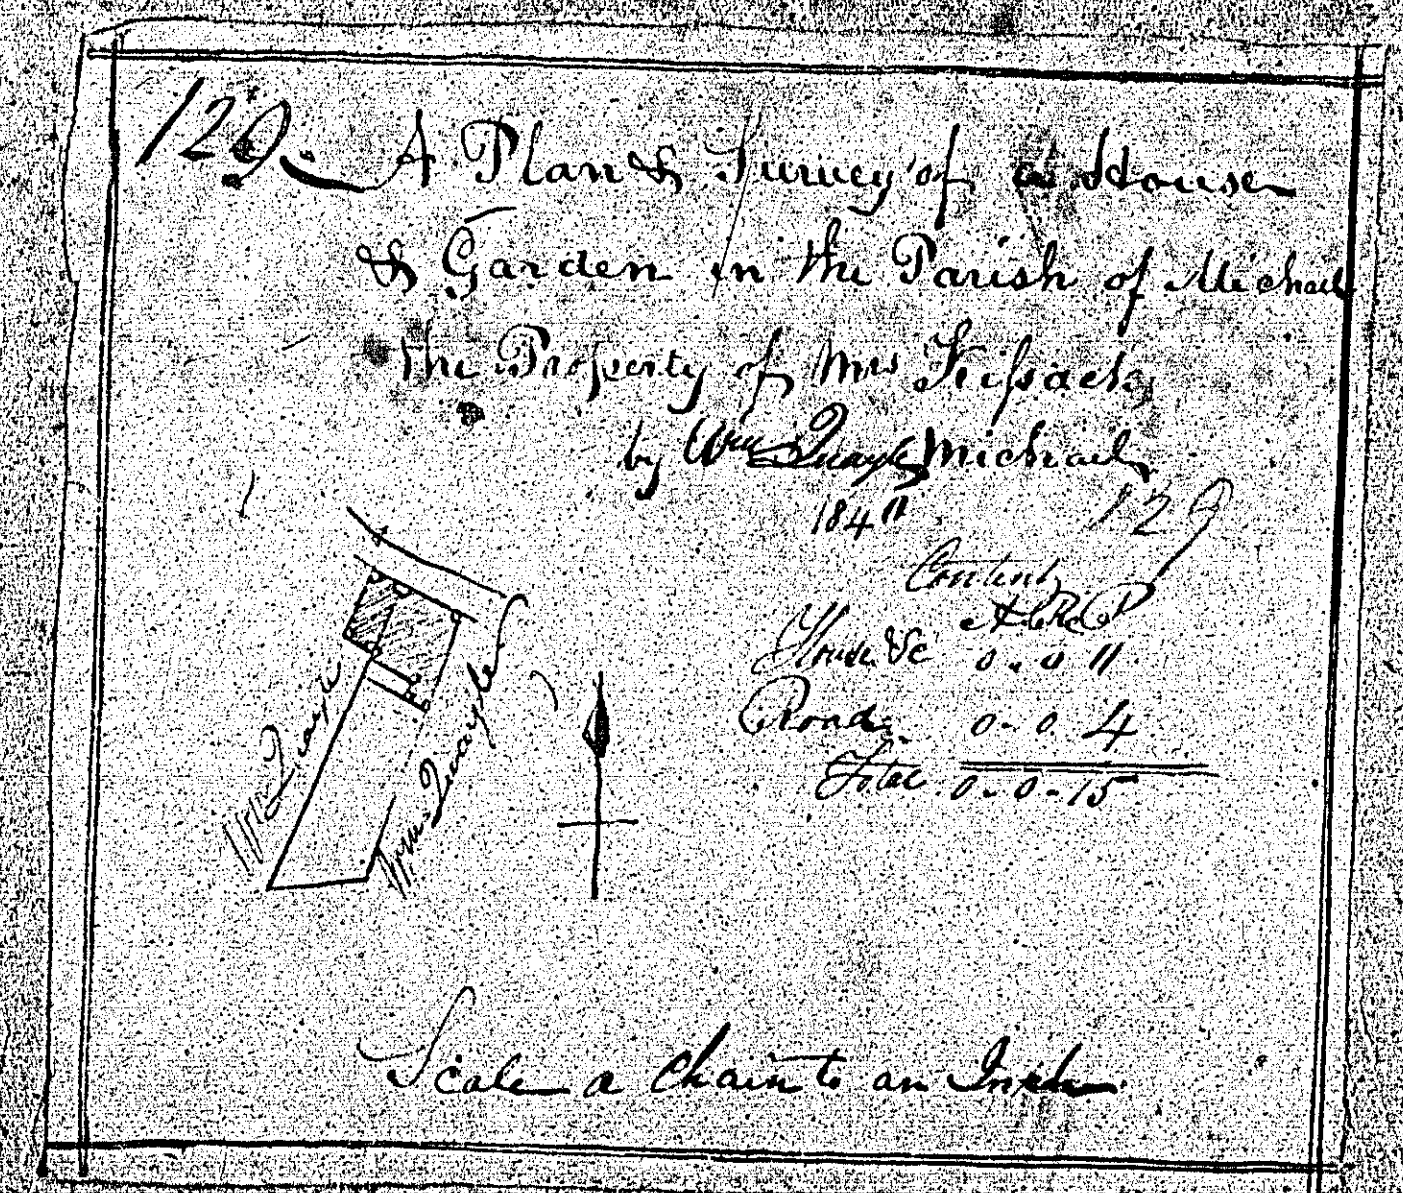 129 A Plan & Survey of a House
& Garden in the Parish of Michael
the Property of Mrs Kissack
by Wm Quayle Michael
184
129
Content
A R P
House &c 0 . 0 11
Road 0 - 0 4
Total 0 - 0 - 15
Quayle
Wm Quayle
Scale a Chain to an Inch